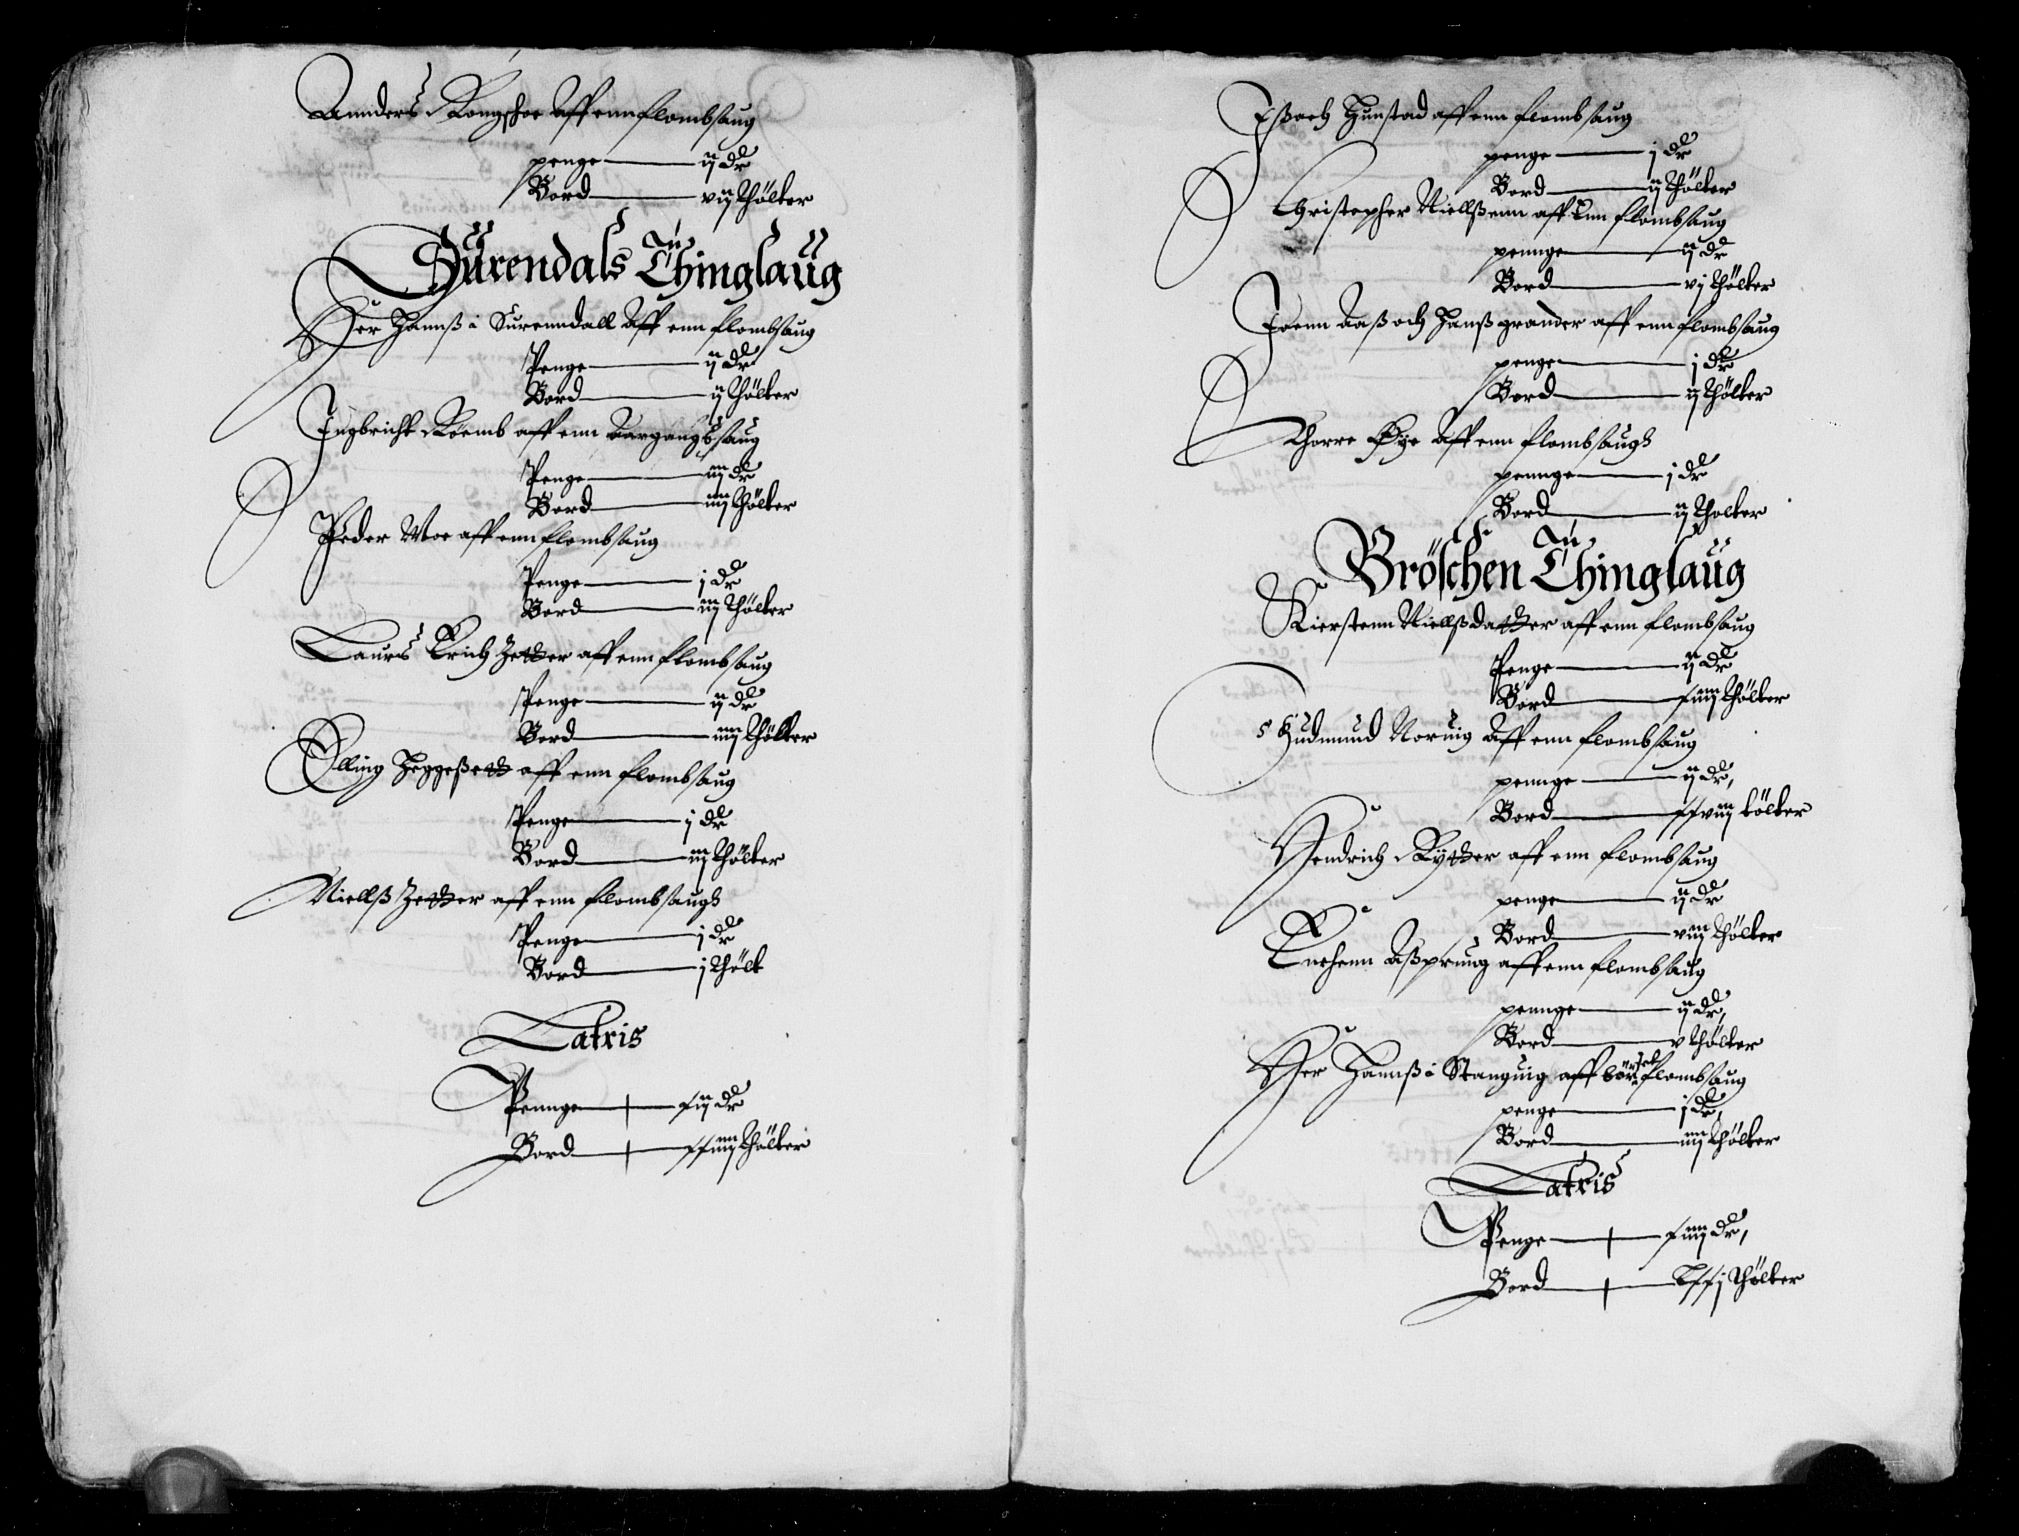 Annders Kongshoe Aff enn flombsaug
penge — ij dr
Bord — vij thölter
Surendals Thinglaug
Her Hannß i Surenndall Aff enn flombsaug
Penge — ij dr
Bord — ij thölter
Ingbricht Röemb aff enn Aargangßsaug
Penge — iiij dr
Bord — iiij thölter
Peder Moe aff enn flombsaug
Penge — j dr
Bord — iij thölter
Laurs Erich Zetter aff enn flombsaug
Penge — ij dr
Bord — iiij thölter
Olling Heggeßett aff enn flombsaug
Penge — j dr
Bord — iij thölter
Niellß Zetter aff enn flombsaugh
Penge — j dr
Bord — j thölt
Latris
Pennge — xij dr
Bord — xxiiij thölter
Eßoch Hunstad aff enn flombsaug
penge — j dr
Bord — ij thölter
Christopher Niellßenn aff Enn flombsaug
pennge — ij dr
Bord — vj thölter
Joenn Aaß och Hanß grander aff enn flombsaug
penge — j dr
Bord — ij thölter
Thorre Øye Aff enn flombsaugh
pennge — j dr
Bord — ij tholter
Bröschen Thinglaug
Kierstenn Niellßdatter aff enn flombsaug
Penge — ij dr
Bord — xiiij thölter
Gudmund Noruig Aff enn flombsaug
pennge — ij dr,
Bord — xxviij tölter
Hendrich Rytter aff enn flombsaug
penge — ij dr
Bord — viij thölter
Enchenn Aßprung aff enn flombsaug
pennge — ij dr,
Bord — v thölter
Her Hannß i Stanguig aff flombsaug
penge — j dr,
Bord — iiij thölter
Latris
Penge — xiiij dr,
Bord — Lxxj thölter